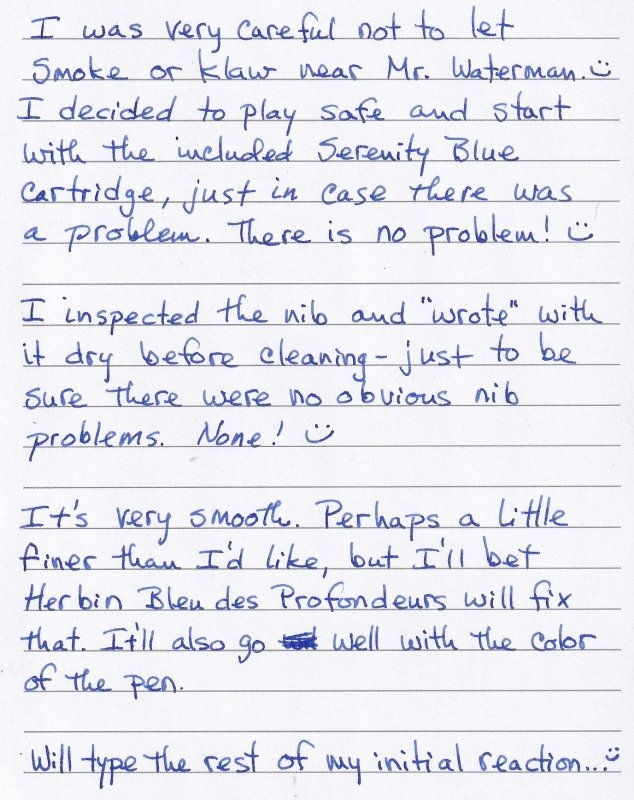 I was very careful not to let
Smoke or Klaw near Mr. Waterman.
I decided to play safe and start
with the included Serenity Blue
cartridge, just in case there was
a problem. There is no problem!
I inspected the nib and "wrote" with
it dry before cleaning - just to be
sure there were no obvious nib
problems. None!
It's very smooth. Perhaps a little
finer than I'd like, but I'll bet
Herbin Bleu des Profondeurs will fix
that. It'll also go well with the color
of the pen.
Will type the rest of my initial reaction...